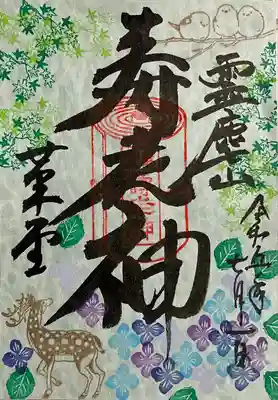 霊麀山
寿老神
革堂
令和五年
七月一日